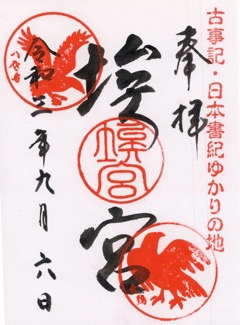 古事記・日本書紀ゆかりの地
奉拝
埃宮
埃宮
八咫烏
令和三年九月六日